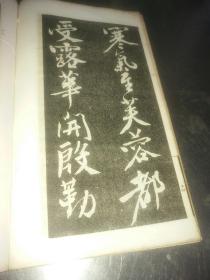 寒氣至芙蓉都
受露華開殷勤